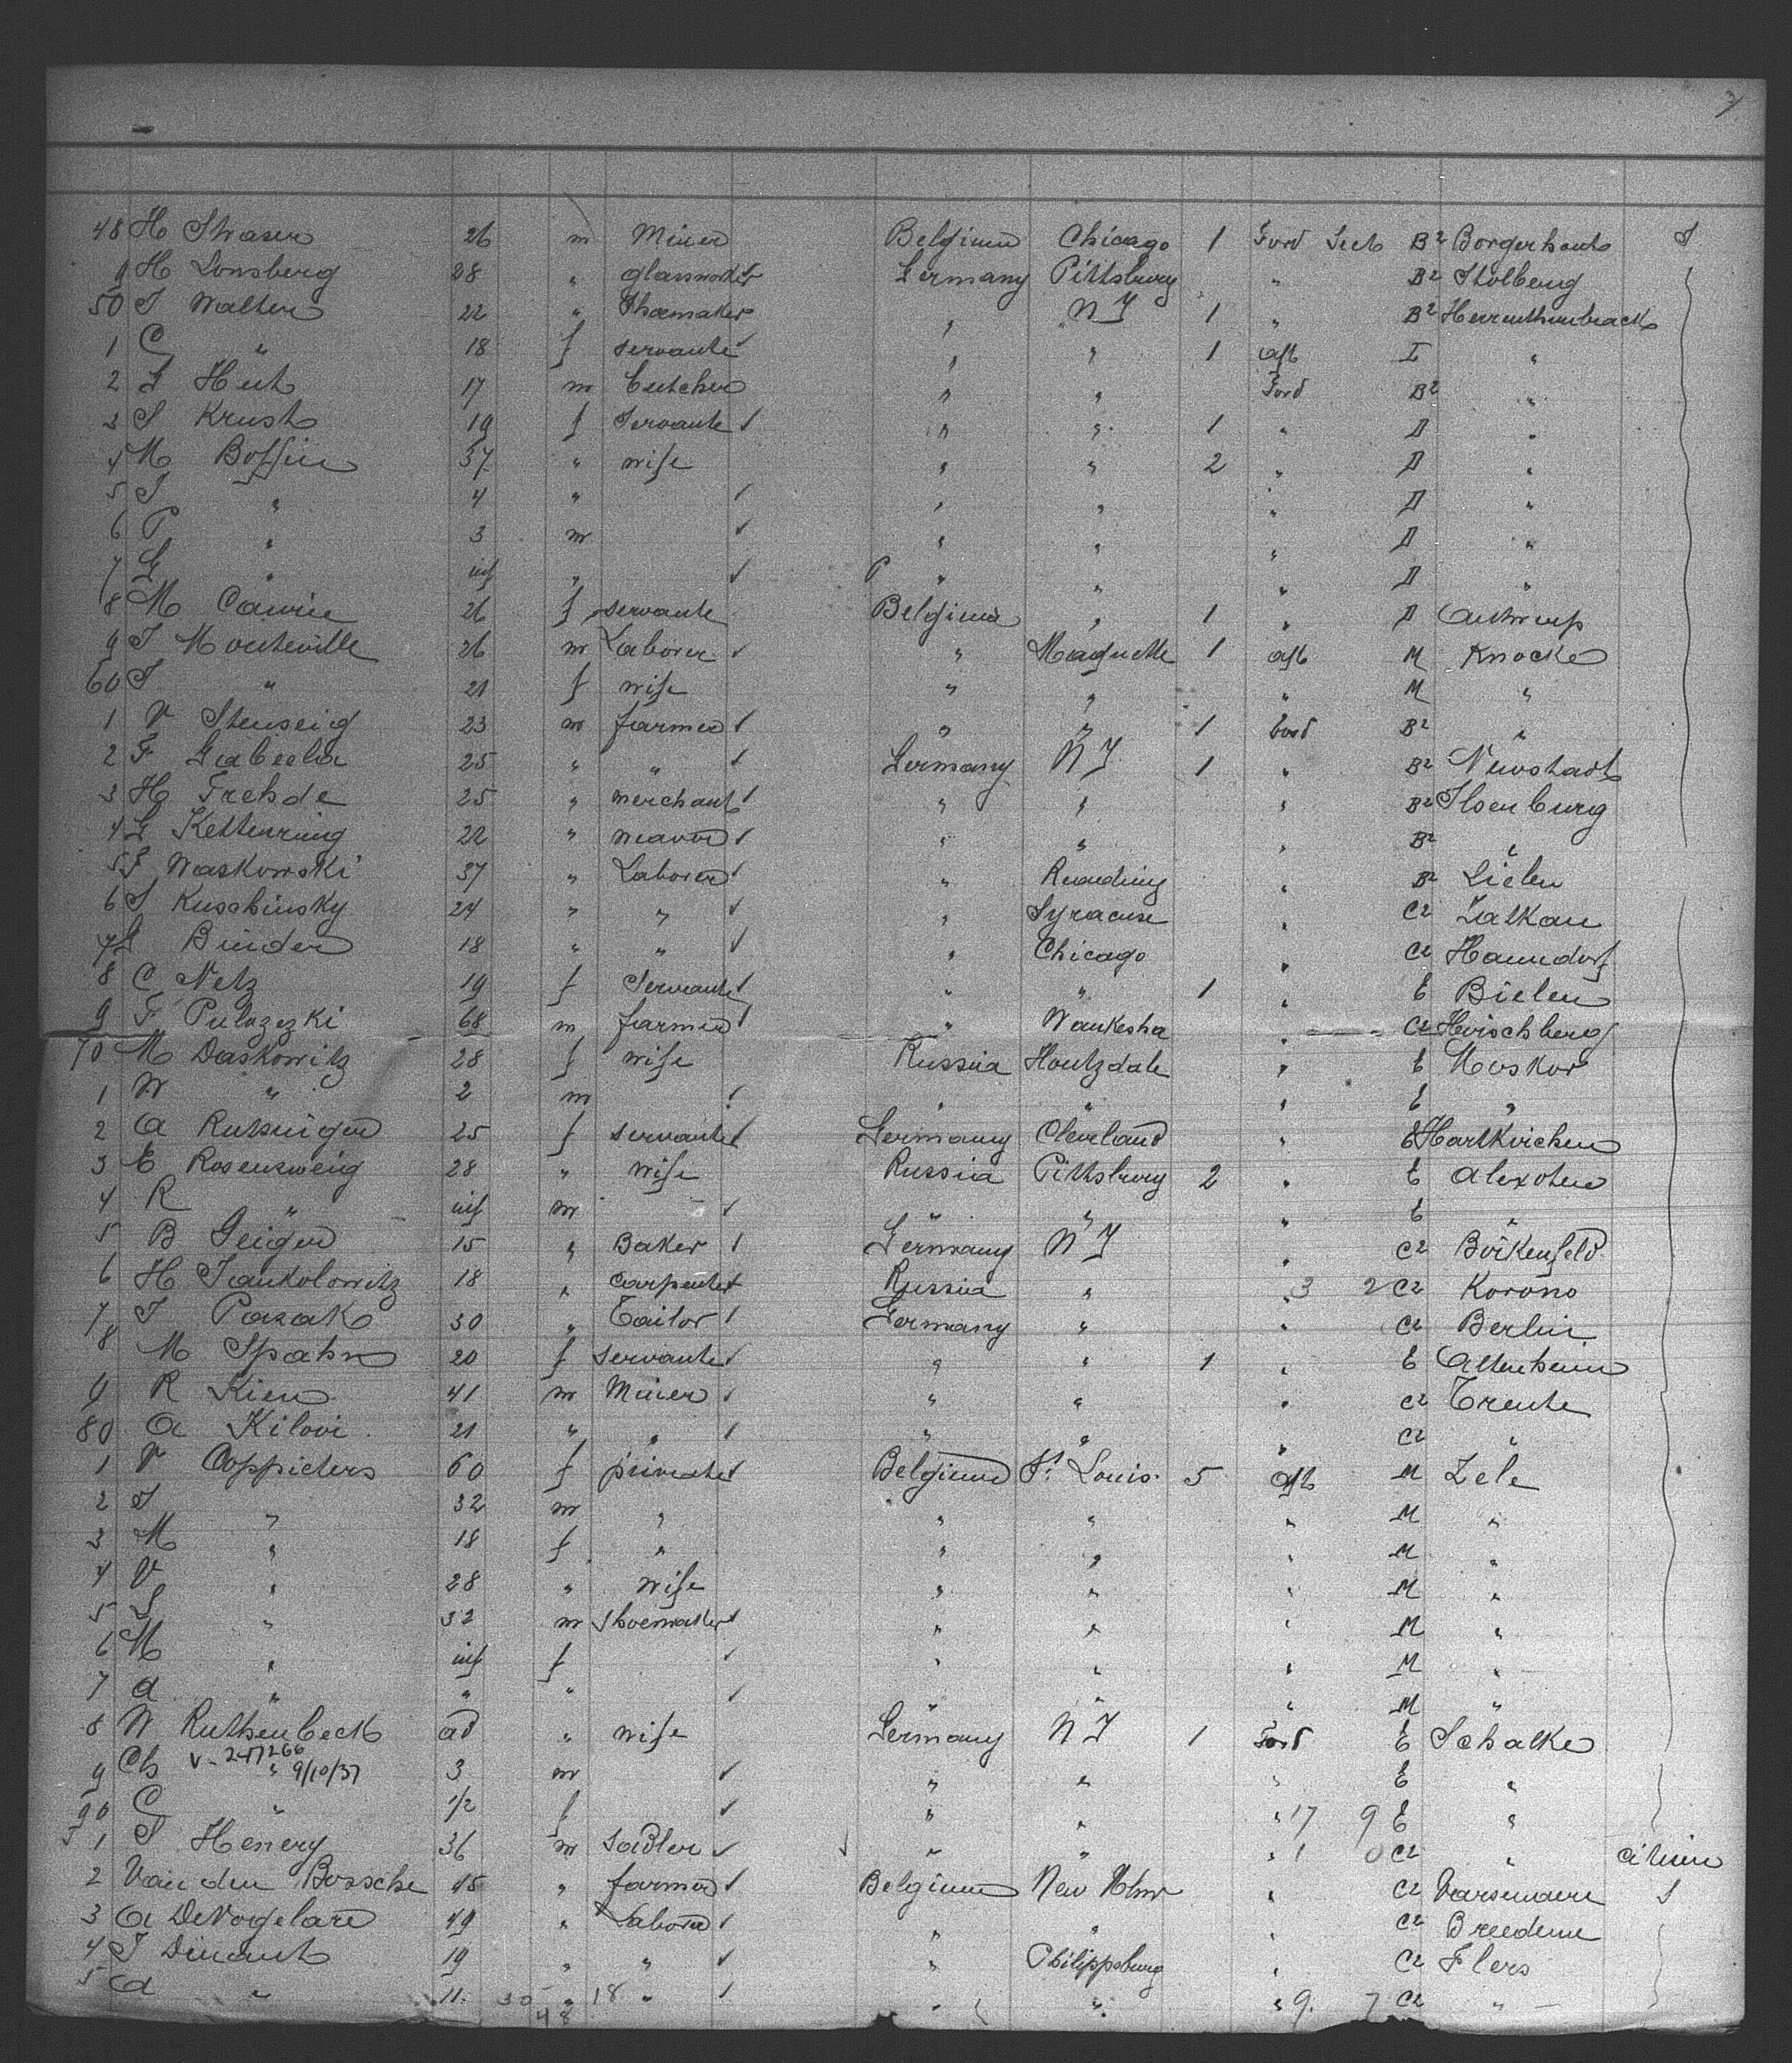 48 H Strasen 26 m Miner Belgium Chicago 1 Ford Sect B2 Borgerhout S
9 H Lonsberg 28 " glassworker Germany Pittsburg " B2 Stolberg
50 J Walter 22 " Shoemaker " NY 1 " B2
1 C " 18 f servante " " 1 aft I "
2 G Hut 17 m butcher " " Ford B2 "
3 S Krust 19 f Servante " " 1 " D "
4 M Boffin 37 " wife " " 2 " D "
5 J " 4 " " " " D "
6 P " 3 m " " " D "
7 G " inf " " " " D "
8 M Cawie 26 f servante Belgium " 1 " D Antwerp
9 J Monteville 26 m Laborer " Maquette 1 aft M Knocke
60 J " 21 f wife " " " M "
1 V Stenseig 23 m farmer " " 1 Ford B2 "
2 F Gabeela 25 " " Germany NY 1 " B2 Neustadt
3 H Frehde 25 " merchant " " " B2 Ilsenburg
4 G Kettenring 22 " weaver " " " B2 "
5 J Waskowski 37 " Laborer " Reading " B2 Lielen
6 S Kuschinsky 24 " " " Syracuse " C2 Zalkau
7 J Binder 18 " " " Chicago " C2 Hanndorf
8 C Netz 19 f Servante " " 1 " E Bielen
9 F Pulozezki 68 m farmer " Waukesha " C2 Hirschberg
70 M Daskowitz 28 f wife Russia Houtzdale " E Moskov
1 W " 2 m " " " E "
2 A 25 f servante Germany Cleveland " E Hartkirchen
3 E Rosensweig 28 " wife Russia Pittsburg 2 " E Alexoten
4 R " inf m " " " E "
5 B Geiger 15 " Baker Germany NY " C2 Birkenfeld
6 H Jankolowitz 18 " carpenter Russia " " 3 2 C2 Korono
7 J Pasak 30 " Tailor Germany " " C2 Berlin
8 M Spahn 20 f servante " " 1 " E Altenheim
9 R Kien 41 m Miner " " " C2 Trente
80 A Kilovi 21 " " " " " C2 "
1 V Coppieters 60 f private Belgium St. Louis 5 aft M Zele
2 J " 32 m " " " " M "
3 M " 18 f " " " " M "
4 V " 28 " wife " " " M "
5 S " 32 m Shoemaker " " " M "
6 M " inf f " " " M "
7 A " " " " " " M "
8 W Ruthenbeck ad " wife Germany NY 1 Ford E Schalke
V-247266 9/10/37
9 Ch " 3 m " " " E "
90 C " 1/2 f " " " 17 9 E "
51 S Henery 36 m Sadler " " " 1 0 C2 " Citizen
2 Van den Bossche 45 " farmer Belgium New Ulm " C2 Varsenaere S
3 A DeVogelare 49 " Laborer " " " C2 Breedene
4 J Dinant 19 " " " Philippsburg " C2 Flers
5 A " 11 30 48 " 18 " " " " 9. 7 C2 "